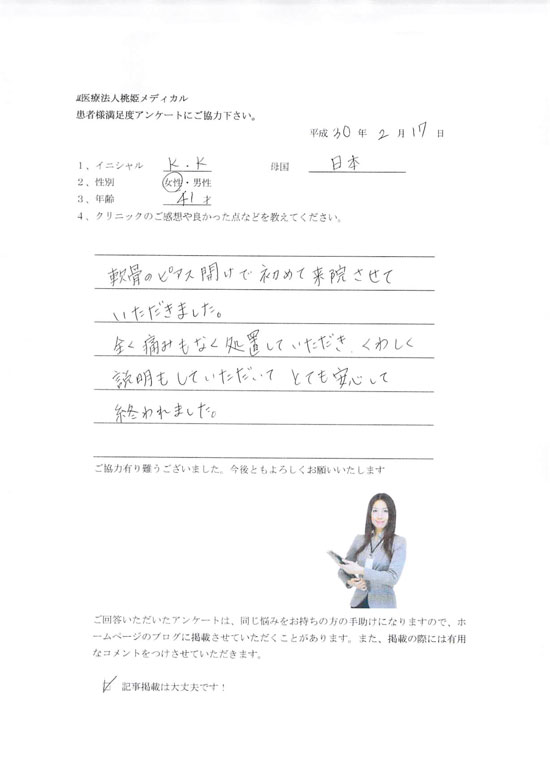 医療法人桃姫メディカル
患者様満足度アンケートにご協力下さい。
平成 30 年 2 月 17 日
1、イニシャル K.K 母国 日本
2、性別 女性・男性
3、年齢 41才
4、クリニックのご感想や良かった点などを教えてください。
軟骨のピアス開けで初めて来院させて
いただきました。
全く痛みもなく処置していただき、くわしく
説明もしていただいてとても安心して
終われました。
ご協力有り難うございました。今後ともよろしくお願いいたします
ご回答いただいたアンケートは、同じ悩みをお持ちの方の手助けになりますので、ホ
ームページのブログに掲載させていただくことがあります。また、掲載の際には有用
なコメントをつけさせていただきます。
記事掲載は大丈夫です！